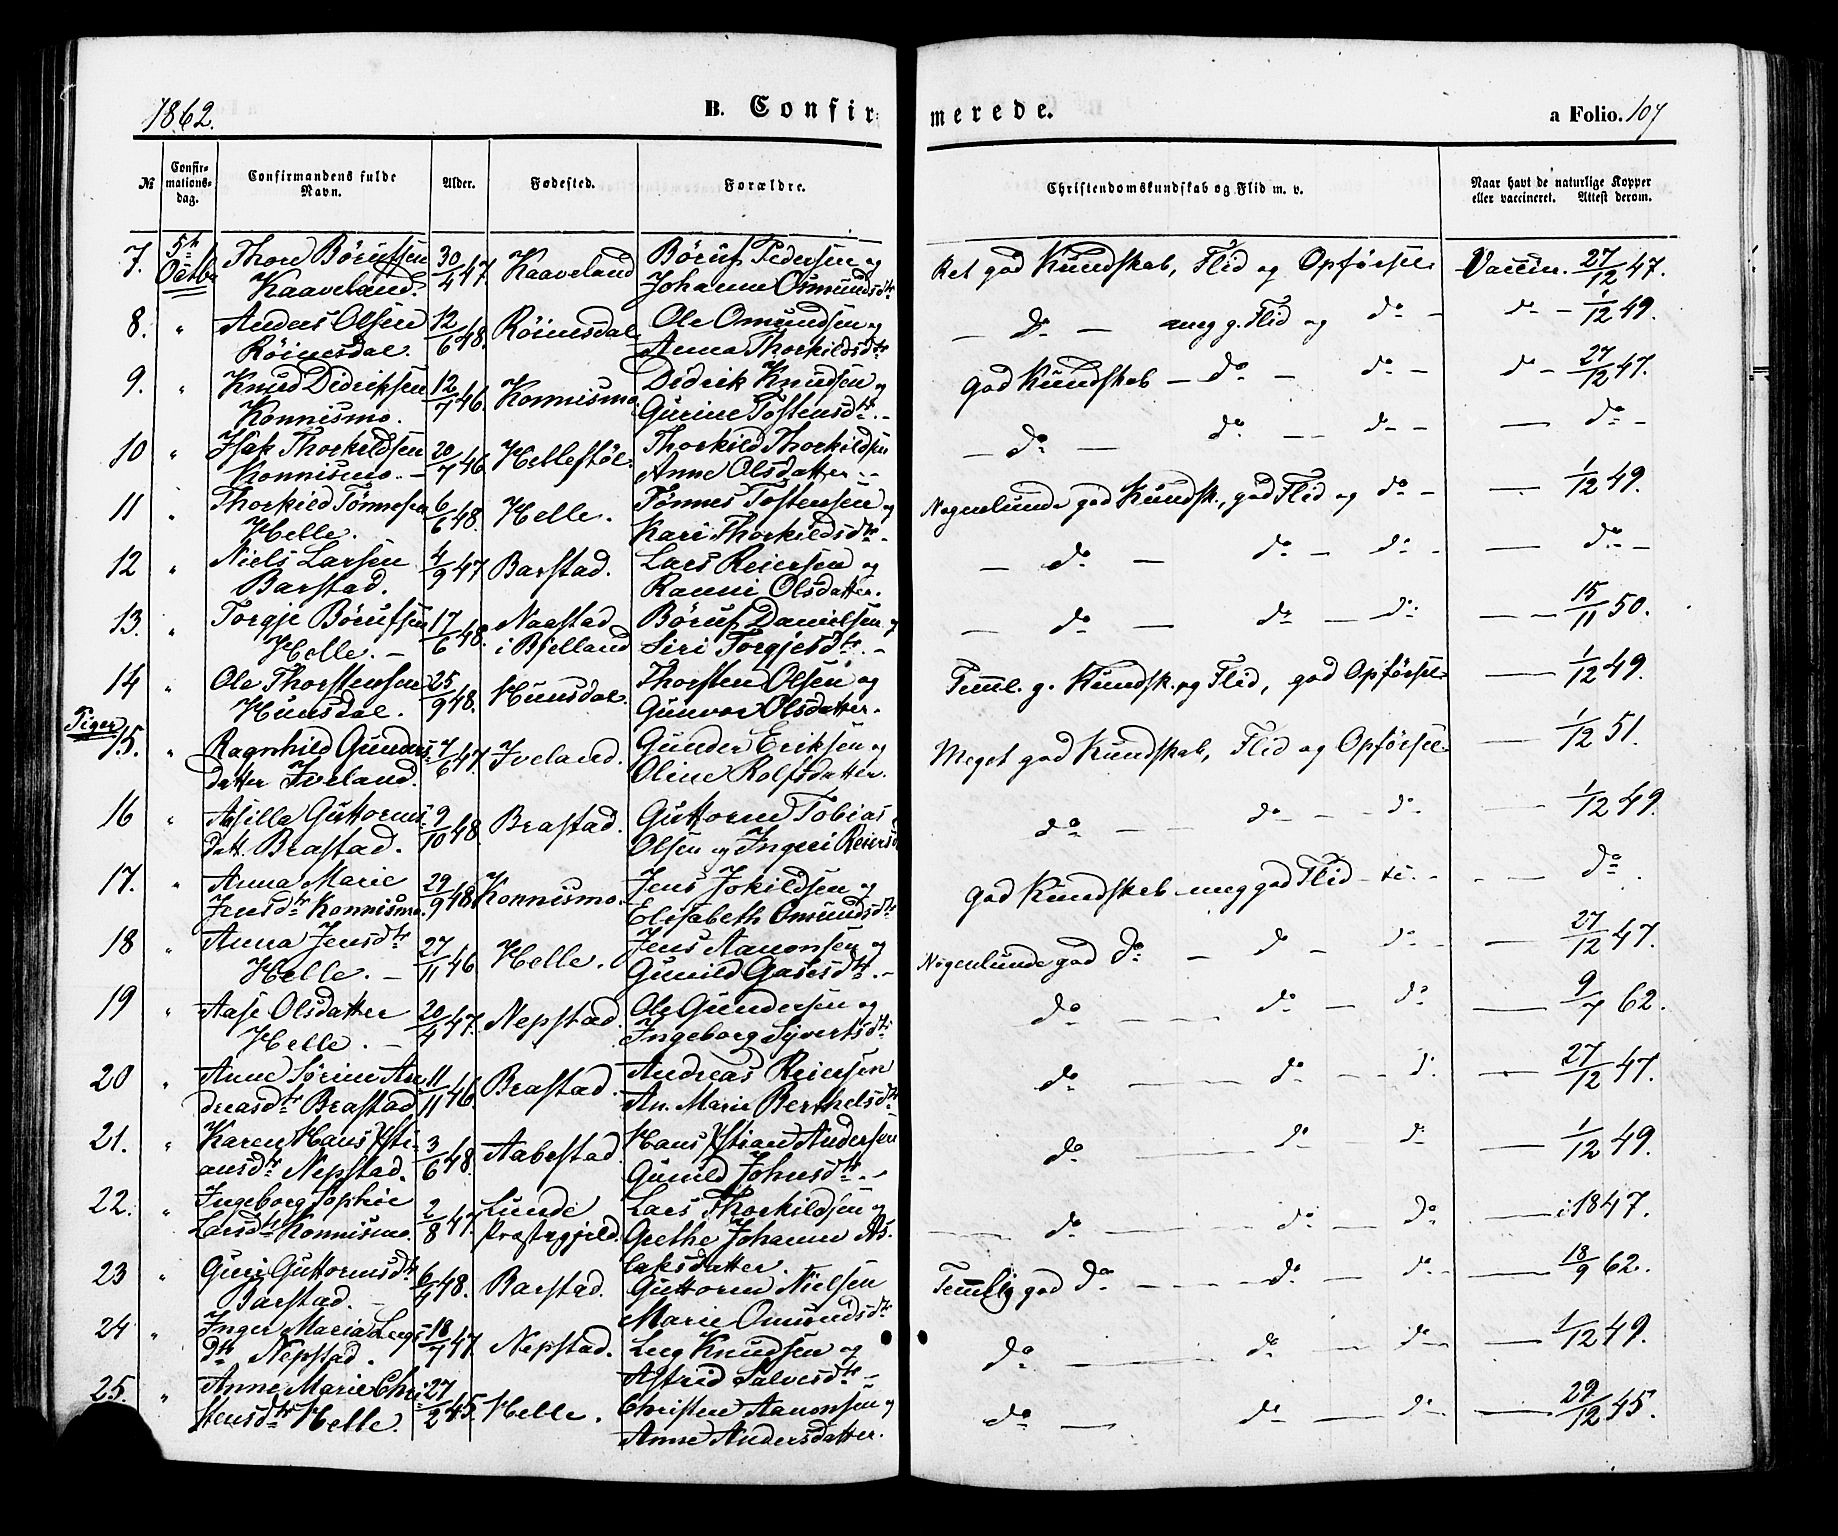 1862.
B. Confir-
merede.
a Folio. 107
№
Confir-
mations-
dag.
Confirmandens fulde
Navn.
Alder.
Fødested.
Forældre.
Christendomskundskab og Flid m. v.
Naar havt de naturlige Kopper
eller vaccineret. Attest derom.
7. 5te Octbr Thore Børufsen Kaaveland. 30/4 47. Kaaveland Børuf Pedersen og Johanne Osmundsdtr Ret god Kundskab, Flid og Opførsel Vaccin. 27/12 47.
8. " Anders Olsen Röinesdal. 12/6 48. Röinesdal Ole Omundsen og Anna Thorkildsdtr — do — meg g. Flid og do - do - 1/12 49.
9. " Knud Didriksen Konnismo. 12/7 46. Konnismo Didrik Knudsen og Gurine Tostensdtr. - God Kundskab - do - do - do - 27/12 47.
10 " Isak Thorkildsen Konnismo. - 20/7 46. Hellestöl. Thorkild Thorkildsen Anne Olsdatter. - — do — do — do - — do -
11 " Thorkild Tönnesen Helle. 6/6 48. Helle. Tönnes Tostensen og Kari Thorkildsdtr. Nogenlunde god Kundsk., god Flid og do - — 1/12 49.
12 " Niels Larsen Barstad. 4/9 47 Barstad. Lars Reiersen og Ranni Olsdatter. — do — do — do - — do -
13. " Torgje Børufsen Helle. - 17/6 48. Naastad i Bjelland Børuf Danielsen og Siri Torgjesdtr. - — do — do — do — 15/11 50.
14 " Ole Thorstensen Hunsdal. 25/9 48. Hunsdal. Thorsten Olsen og Gunvor Olsdatter. Teml. g. Kundsk. og Flid, god Opførsel — 1/12 49.
Piger
15. " Ragnhild Gunders- datter Iveland. 7/6 47. Iveland. Gunder Eriksen og Oline Rolfsdatter. Meget god Kundskab, Flid og Opførsel — 1/12 51.
16 " Asilla Guttorms- datt. Brastad. 9/10 48. Brastad. Guttorm Tobias Olsen og Ingeri Reiersd do — — do — do — 1/12 49.
17. " Anna Marie Jensdtr Konnismo. 29/9 48 Konnismo. Jens Jokildsen og Elisabeth Omundsdtr God Kundskab meg god Flid - do - — do
18 " Anna Jensdtr Helle. - 27/11 46 Helle. Jens Aanonsen og Gunild Gasesdtr. - Nogenlunde god do — do — do - — 27/12 47.
19 " Aase Olsdatter Helle. - 20/4 47. Nepstad. Ole Gundersen og Ingeborg Syvertsdtr do — do — do — 9/7 62.
20 " Anne Sörine An- dreasdtr Brastad 11/11 46. Brastad. Andreas Reiersen An. Marie Berthelsdtr do — do — do — 27/12 47.
21. " Karen Hans Xsti- ansdtr Nepstad. 3/6 48. Aabestad. Hans Xstian Andersen Gunild Johnsdtr. - do — do do — 1/12 49.
22. " Ingeborg Sophie Larsdtr Konnismo. 2/8 47. Lunde Præstegjeld. Lars Thorkildsen og Grethe Johanne As- laksdatter. do — do — do — i 1847.
23 " Guri Guttormsdtr Barstad. - 6/4 48. Barstad. Guttorm Nielsen Marie Omundsdtr Temlig god do — do — do — 18/9 62.
24 " Inger Maria Leegs- dtr Nepstad. 18/7 47. Nepstad. Leeg Knudsen og Astrid Salvesdtr - do — do — do — 1/12 49.
25. " Anne Marie Chri- stensdtr Helle. 27/2 45. Helle. Christen Aanonsen og Anne Andersdatter. do — do — do — 29/12 45.